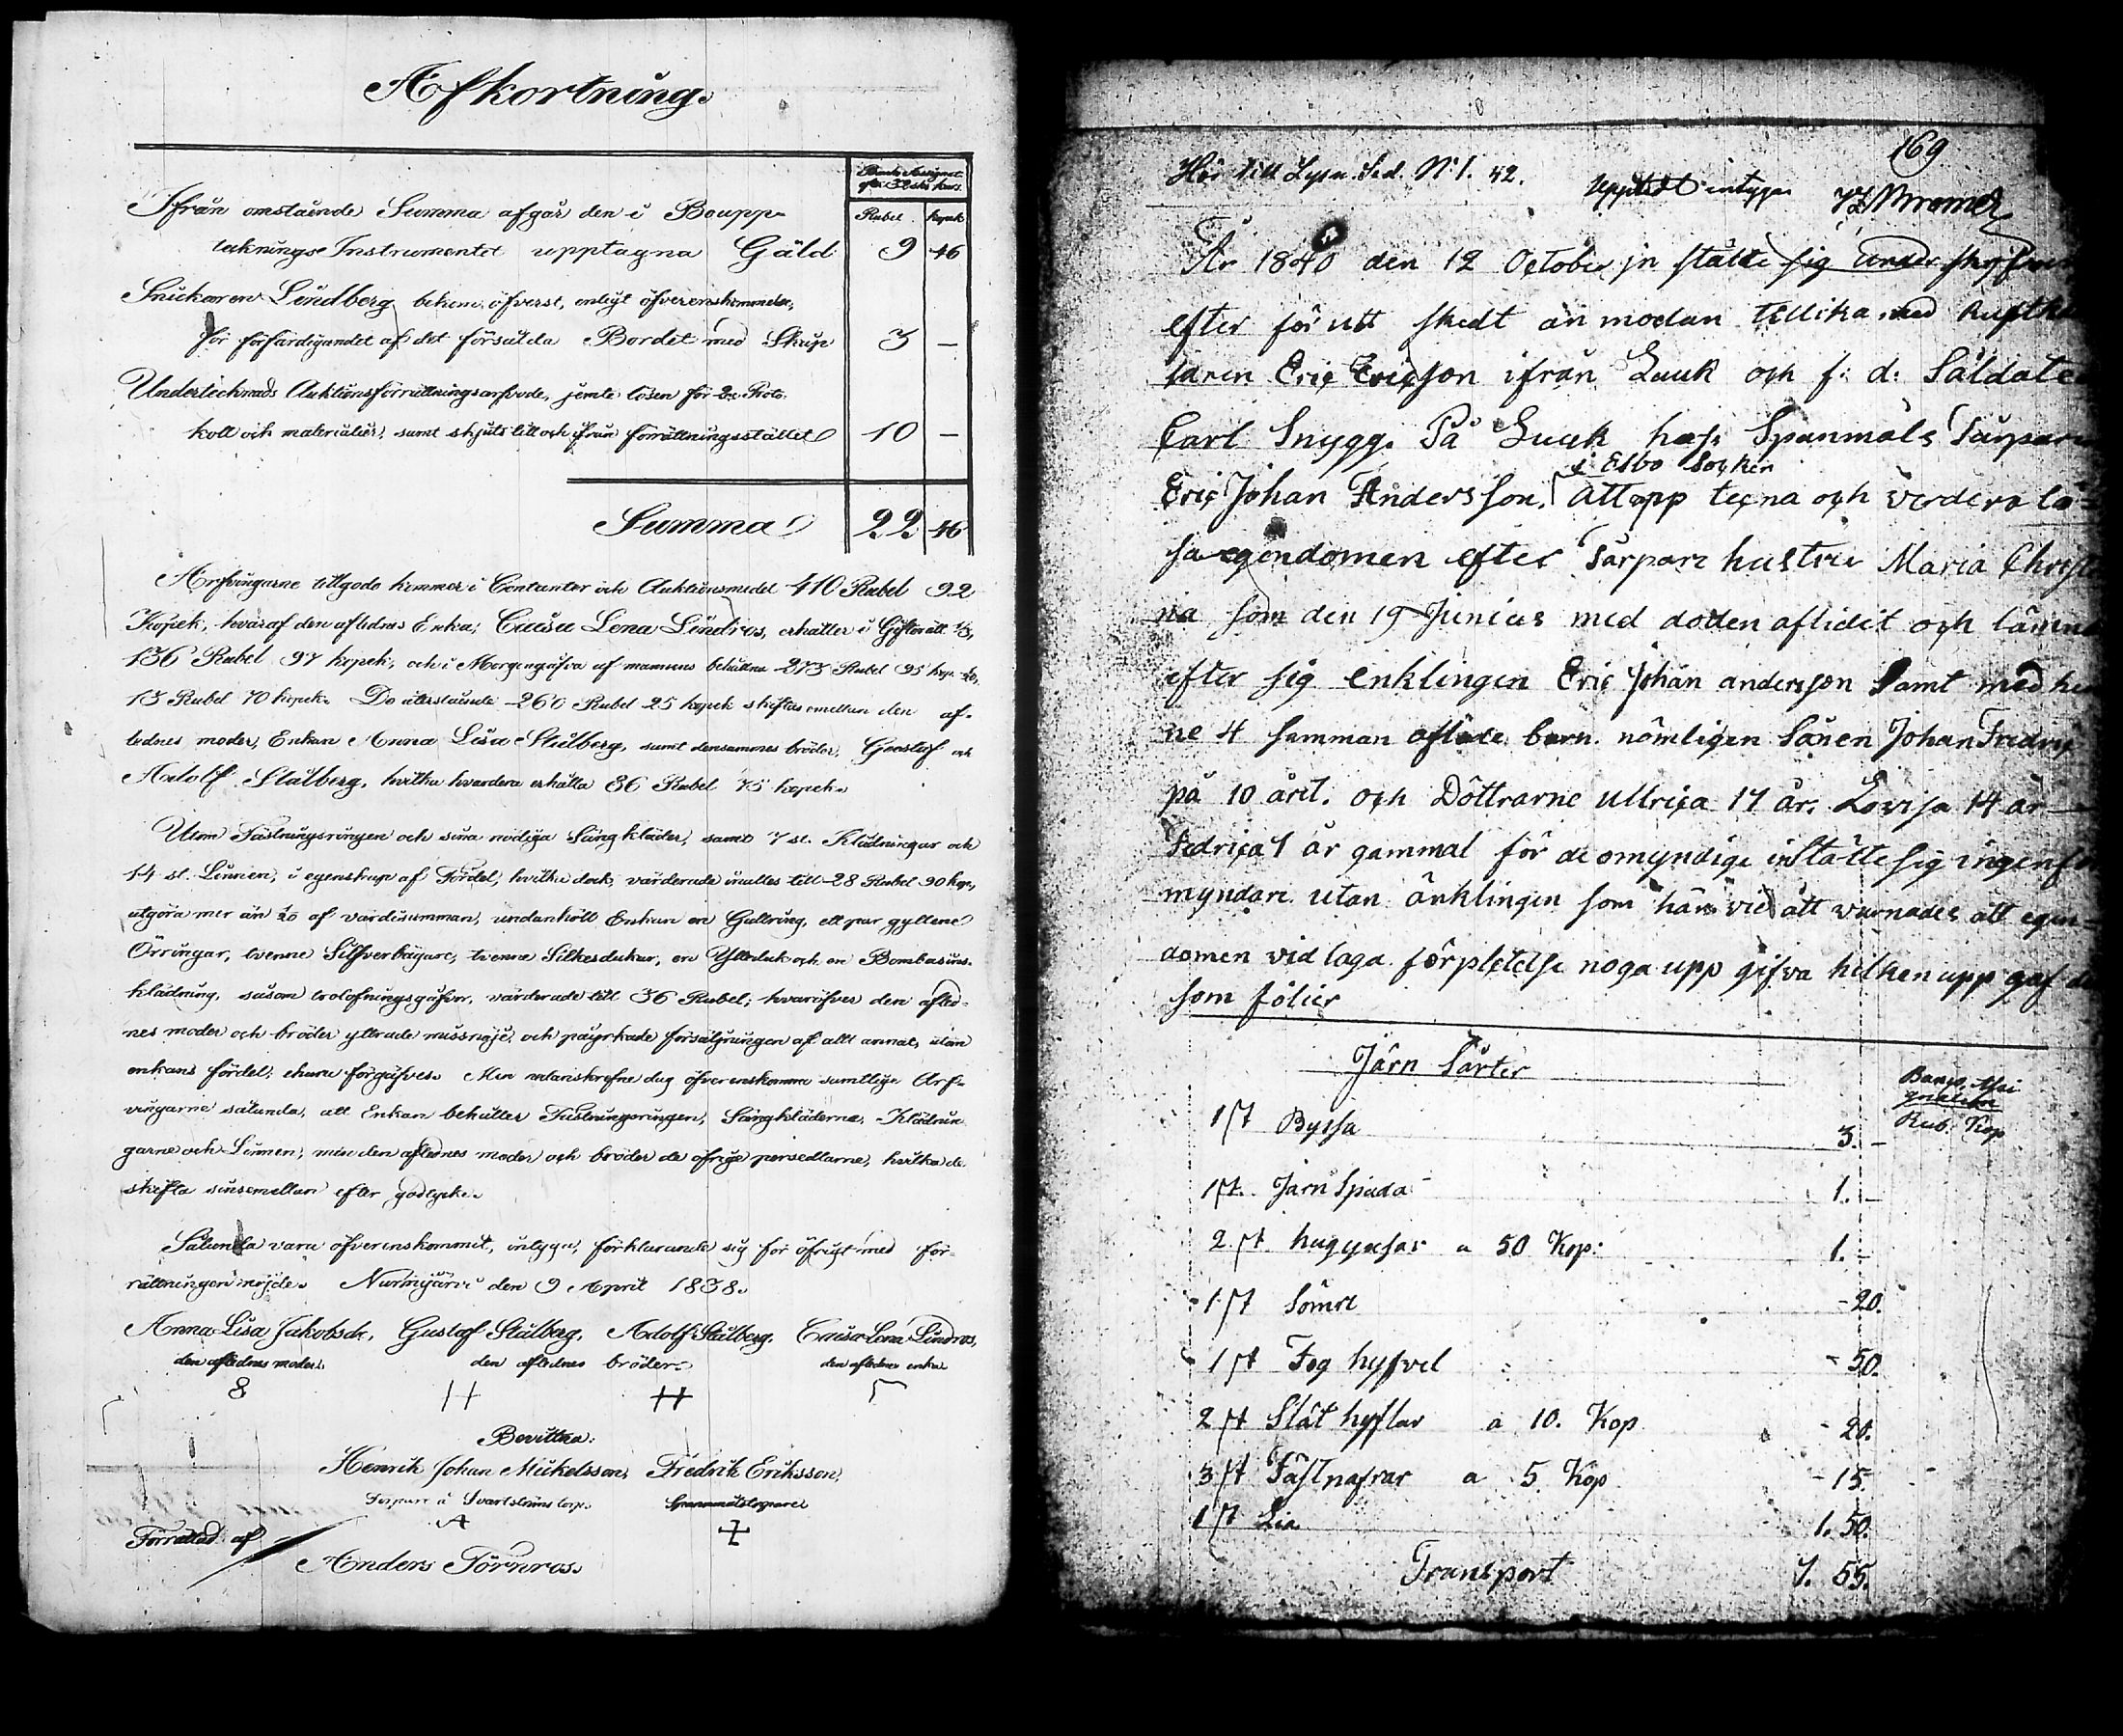 Afkortning.
Banko Assignat.
efter 32 sks kurs.
Rubel. kopek
Ifrån omstående Summa afgår den i Boupp-
tecknings Instrumentet upptagna Gäld 9 46
Snickaren Lindberg bekom öfverst, enligt öfverenskommelse,
för förfärdigandet af det försålda Bordet med Skåp 3 —
Undertecknads Auktionsförrättningsarfvode, jemte lösen för 2ne Proto-
koll och materialier, samt skjuts till och ifrån förrättningsstället 10 —
Summa 22 46
Arfvingarne tillgodo kommer i Contanter och Auktionsmedel 410 Rubel 92
Kopek, hvaraf den aflednes Enka, Caisa Lena Lindros, erhåller i Giftorätt 1/3,
136 Rubel 97 kopek, och i Morgongåfva af mannens behållna 273 Rubel 95 kop.
13 Rubel 70 kopek. De återstående 260 Rubel 25 kopek skiftas emellan den af-
lednes moder, Enkan Anna Lisa Stålberg, samt densammes bröder, Gustaf och
Adolf Stålberg, hvilka hvardera erhålla 86 Rubel 75 kopek.
Utom Fästningsringen och sina nödiga Sängkläder, samt 7 st. Klädningar och
14 st. Linnen, i egenskap af Fördel, hvilka dock, värderade inalles till 28 Rubel 90 kop.,
utgöra mer än 1/20 af värdesumman, undanhöll Enkan en Gullring, ett par gyllene
Örringar, tvenne Silfverbägare, tvenne Silkesdukar, en Ylleduk och en Bombasins-
klädning, såsom trolofningsgåfvor, värderade till 36 Rubel; hvaröfver den afled-
nes moder och bröder yttrade missnöje, och påyrkade försäljningen af allt annat, utom
enkans fördel, ehuru förgäfves. Men nedanskrefne dag öfverenskomma samtlige Arf-
vingarne sålunda, att Enkan behåller Fästningsringen, Sängkläderne, Klädnin-
garne och Linnen, men den aflednes moder och bröder de öfrige persedlarne, hvilka de
skifta sinsemellan efter godtycke.
Sålunda vara öfverenskommit, intyga, förklarande sig för öfrigt med för-
rättningen nöjde. Nurmijärvi den 9 April 1838.
Anna Lisa Jakobsdr, Gustaf Stålberg, Adolf Stålberg, Caisa Lena Lindros,
den aflednes moder. den aflednes bröder. den aflednes enka
Bevittna:
Henrik Johan Mickelsson, Fredrik Eriksson,
Torpare å Svartströms torp. Spannmålstorpare
Förrättad af
Anders Törnros.
169
Hör till Lysn. Sed. N:1. 42.
Upptedt intygar
År 1840 den 12 October in stälte sig under skrifven
efter förutt skedt an modan tillika med Rusthå
laren Eric Ericsson ifrån Luuk och f: d: Såldaten
Carl Snygg. På Luuk hos Spanmåls Tårparen
i Esbo Socken
Eric Johan Andersson, att opp tecna och verdera lö-
sa egendomen efter Tårpare hustru Maria Christi
na som den 19 Junius med döden aflidit och lämn
efter sig enklingen Eric Johan andersson Samt med hen
ne 4 samman aflade barn. nömligen Sånen Johan Fredric
på 10 året. och Döttrarne Ullrica 17 år. Lovisa 14 år
Fedrica 1 år gammal för de omyndige instälte sig ingen för
myndare utan änklingen som här vid att varnades att egen-
domen vid laga förplictelse noga upp gifva hilken upp gaf den
som följer
Järn Sårter
Banco Assi
gnation
Rub. Kop
1 st Byssa 3. —
1 st. Järn Spada 1. —
2 st. hugyxsar a 50 Kop: 1. —
1 st Sömst - 20.
1 st Fog hyfvel - 50.
2 st Slät hyflar a 10. Kop - 20.
3 st Tåslnafrar a 5 Kop - 15.
1 st Lia 1. 50.
Transport 7. 55.